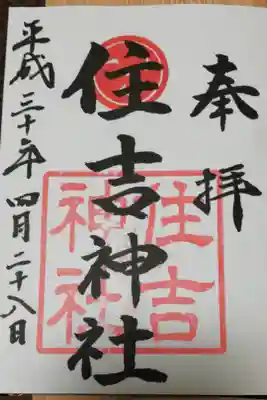 奉拝
住吉神社
住吉
神社
平成三十年四月二十八日